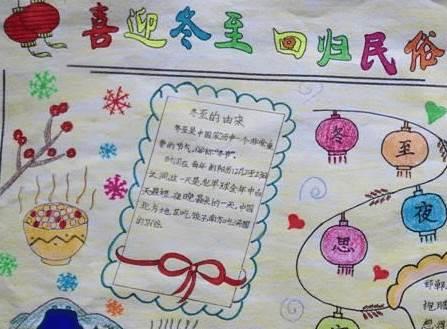 喜迎冬至 回归民俗
冬至的由来
冬至是中国农历中一个非常重
要的节气，俗称"冬节"，
时间在每年的阳历12月21至23日
之间，这一天是北半球全年中白
天最短、夜晚最长的一天，中国
北方地区吃饺子，南方吃汤圆
的习俗。
冬
至
夜
思
邯郸